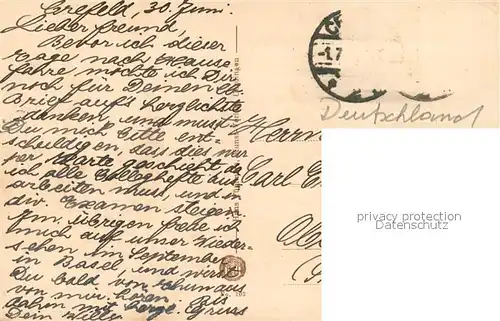 Crefeld, 30. Juni.
Lieber Freund,
Bevor ich dieser
Tage nach Hause
fahre möchte ich Dir
noch für Deinen lb.
Brief auf's herzlichste
danken, und musst
Du mich bitte ent-
schuldigen, dass dies nur
per Karte geschieht da
ich alle Colleghefte aus-
arbeiten muss, und
div. Examen steigen.
Im übrigen freue ich
mich auf unser Wieder-
sehen im September
in Basel, und wirst
Du bald von
von mir hören. Bis
dahin mit herzl. Gruss
Dein Willy
Deutschland
Herrn
Carl
privacy protection
watermark